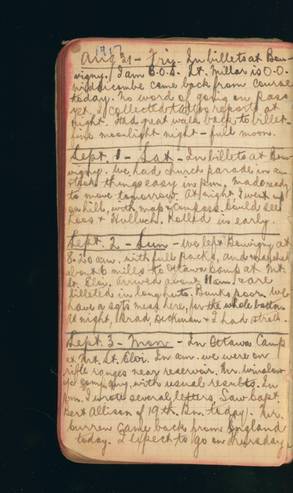 1917
Aug 31 - Fri. In billets at Bou-
vigny. I am B.O.S. Lt. Millar is O.O.
Widdicombe came back from course
today. No word of going on pass
yet. I collected tattoo reports at
night. Had great walk back to billet -
fine moonlight night - full moon.
Sept. 1 - Sat - In billets at Bou-
vigny. We had church parade in a.m.
things easy in p.m., made ready
to move tomorrow. At night I went up
on hill, with map & compass. Could see
Lens & Hulluch. Rolled in early.
Sept. 2 - Sun - We left Bouvigny at
8.30 a.m. with full packs, and marched
about 6 miles to Ottawa Camp at Mt.
St. Eloi. Arrived about 11 am & are
billeted in long huts. Bunk poor. We
have a sgts mess here, for the whole battn
At night, Brad, Dickman & I had a stroll.
Sept. 3 - Mon - In Ottawa Camp
at Mt. St. Eloi. In am. we were on
rifle ranges near reservoir. Mr. Winslow
company, with usual results. In
p.m. I wrote several letters. Saw Capt.
Bert Allison of 19th Bn. today. Mr.
Burrow came back from England
today. I expect to go on Thursday